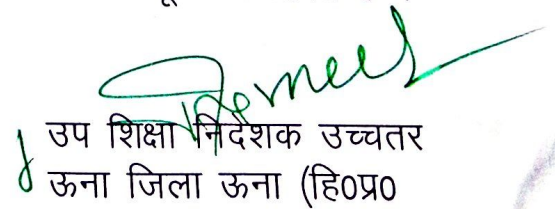 उप शिक्षा निदेशक उच्चतर
ऊना जिला ऊना (हि०प्र०